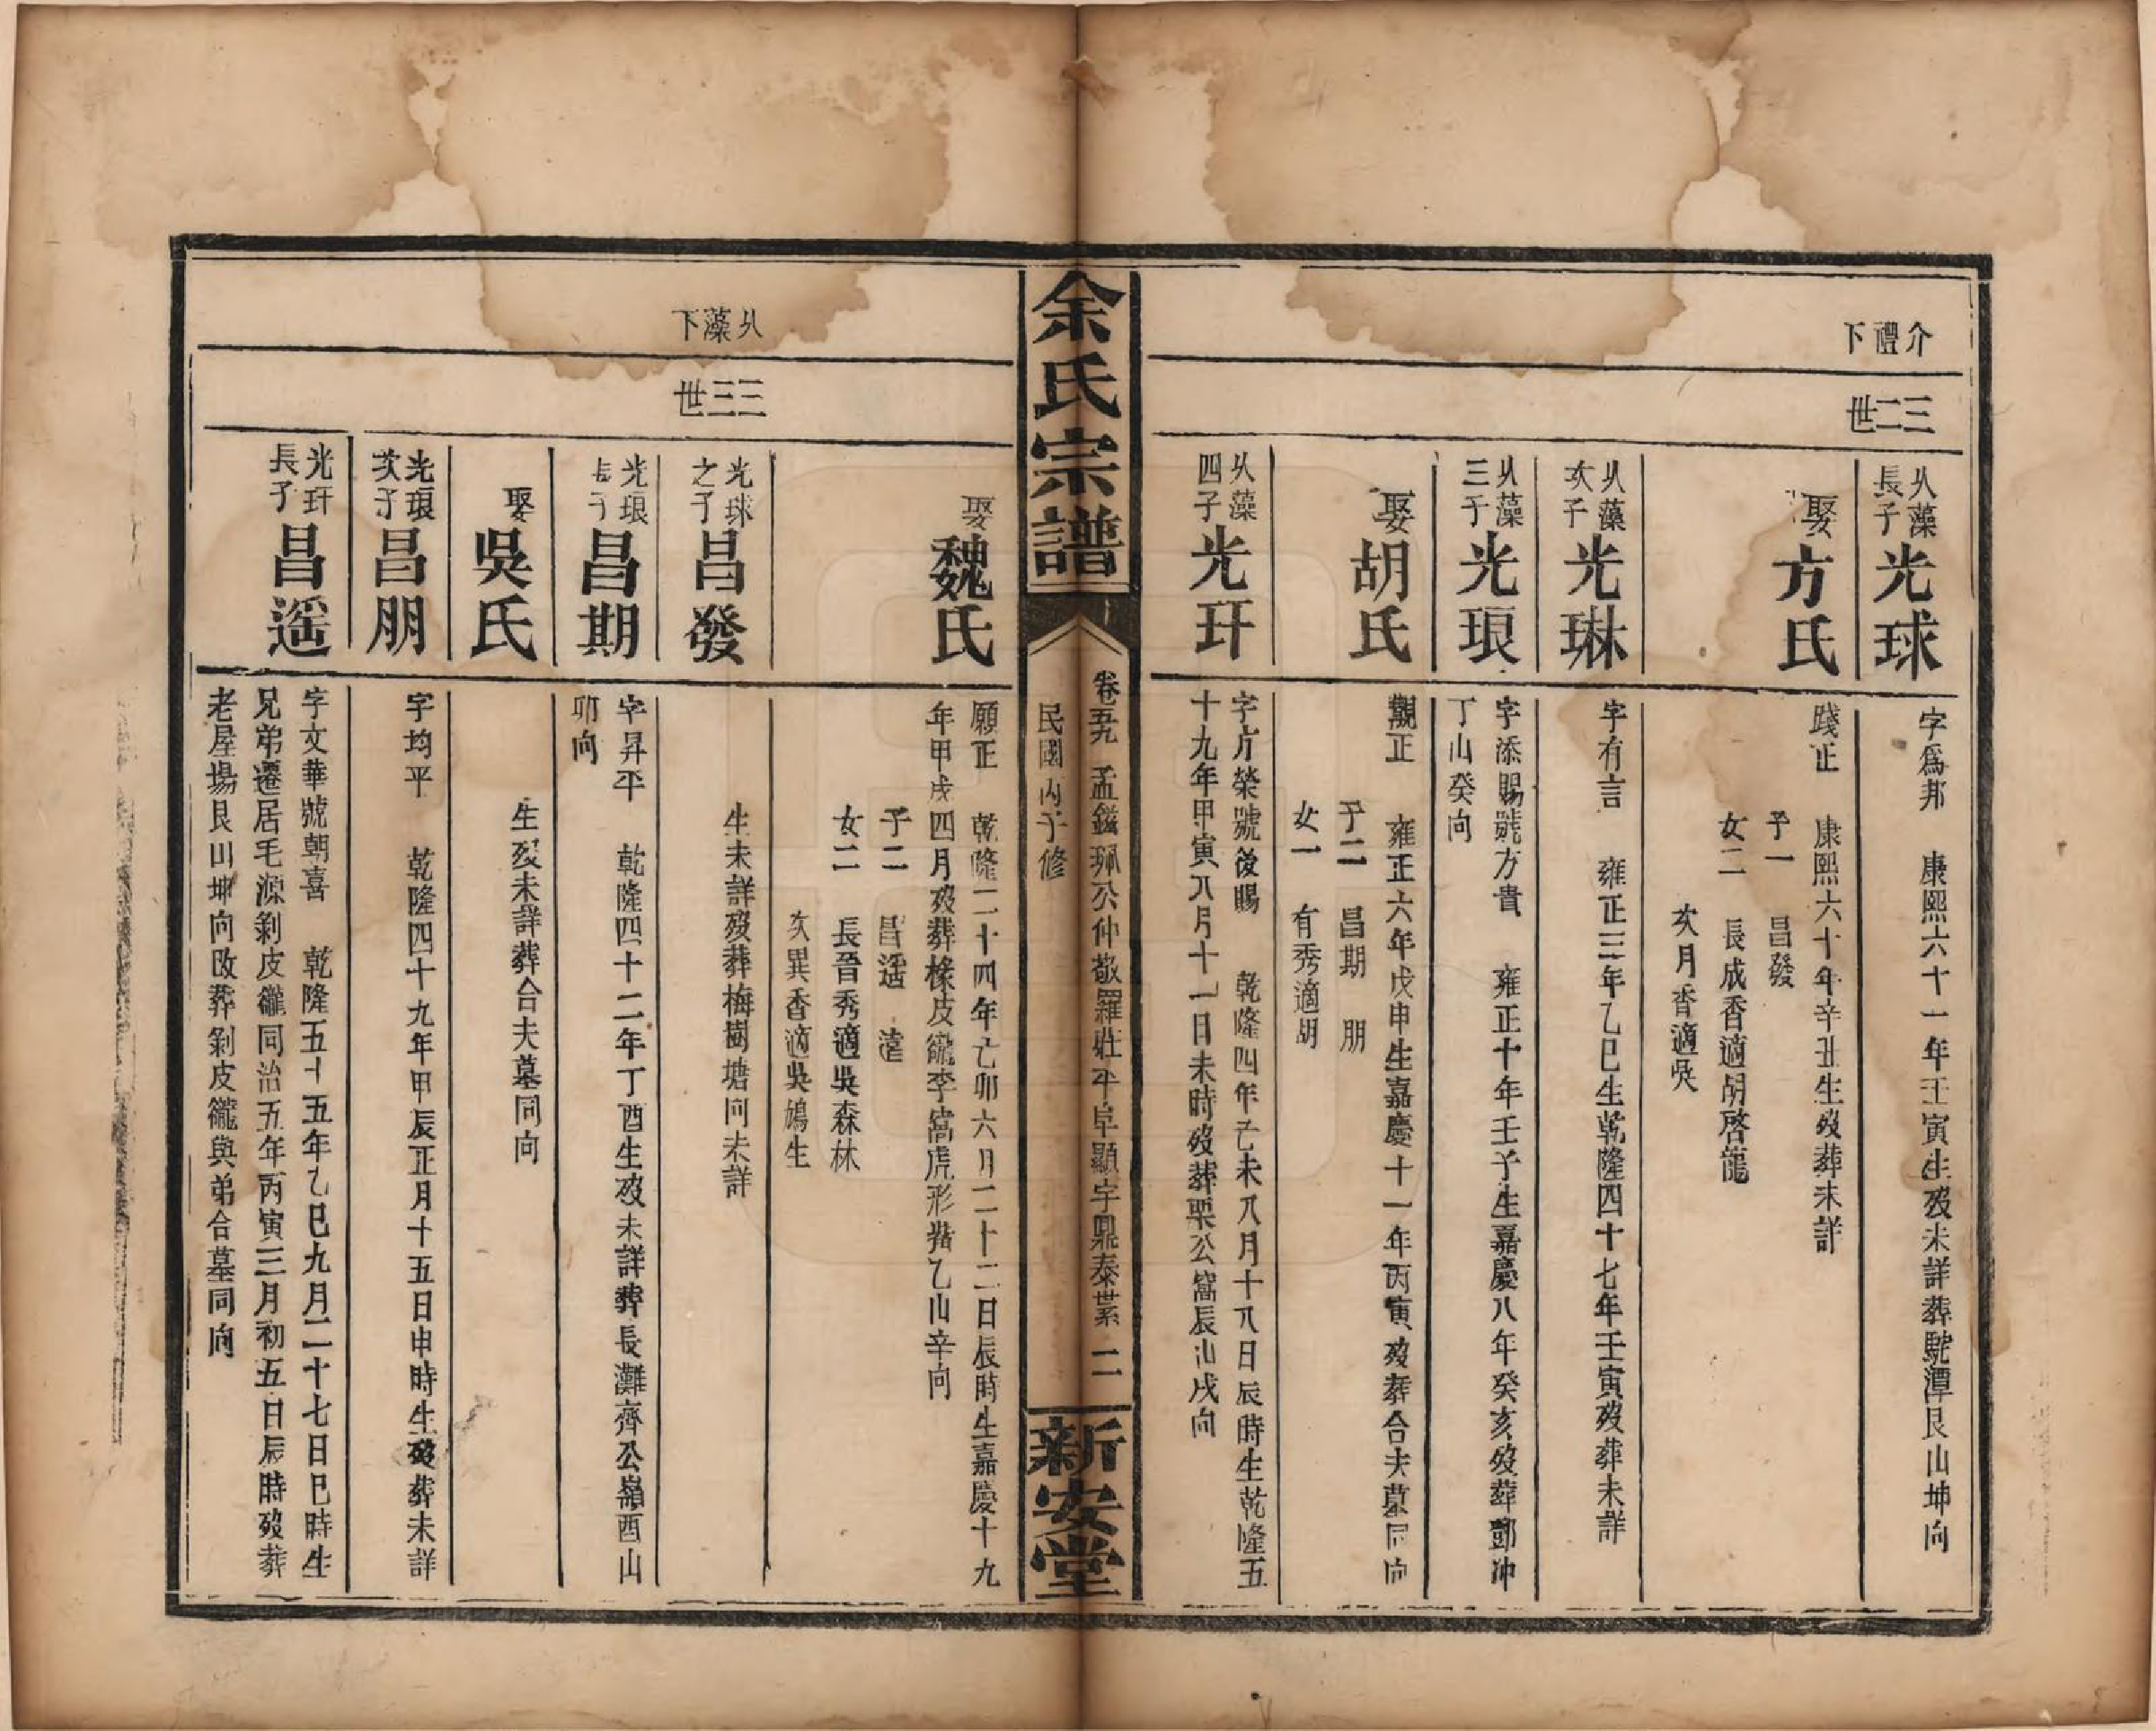 介禮下
三二世
从藻長子
光球
字為邦 康熙六十一年壬寅生歿未詳葬駝潭艮山坤向
娶方氏
踐正 康熙六十年辛丑生歿葬未詳
子一 昌發
女二 長成香適胡啓龍
次月香適吳
从藻次子
光琳
字有言 雍正三年乙巳生乾隆四十七年壬寅歿葬未詳
从藻三子
光琅
字添賜號方貴 雍正十年壬子生嘉慶八年癸亥歿葬鄧沖
丁山癸向
娶胡氏
觀正 雍正六年戊申生嘉慶十一年丙寅歿葬合夫墓同向
子二 昌期 朋
女一 有秀適胡
从藻四子
光玕
字斤榮號後賜 乾隆四年己未八月十八日辰時生乾隆五
十九年甲寅八月十一日未時歿葬栗公窩辰山戌向
余氏宗譜
卷五九 孟鎡珮公仲敬羅壯平阜顯宇鼎泰世系 二
民國丙子修
新安堂
从藻下
三三世
娶魏氏
願正 乾隆二十四年己卯六月二十二日辰時生嘉慶十九
年甲戌四月歿葬橡皮衝李窩虎形嘴乙山辛向
子二 昌遥 達
女二 長晉秀適吳森林
次異香適吳鳩生
光球之子
昌發
生未詳歿葬梅樹塘向未詳
光琅長子
昌期
字昇平 乾隆四十二年丁酉生歿未詳葬長灘齊公嶺酉山
卯向
娶吳氏
生歿未詳葬合夫墓同向
光琅次子
昌朋
字均平 乾隆四十九年甲辰正月十五日申時生歿葬未詳
光玕長子
昌遥
字文華號朝喜 乾隆五十五年乙巳九月二十七日巳時生
兄弟遷居毛源剝皮衝同治五年丙寅三月初五日辰時歿葬
老屋場艮山坤向改葬剝皮衝與弟合墓同向